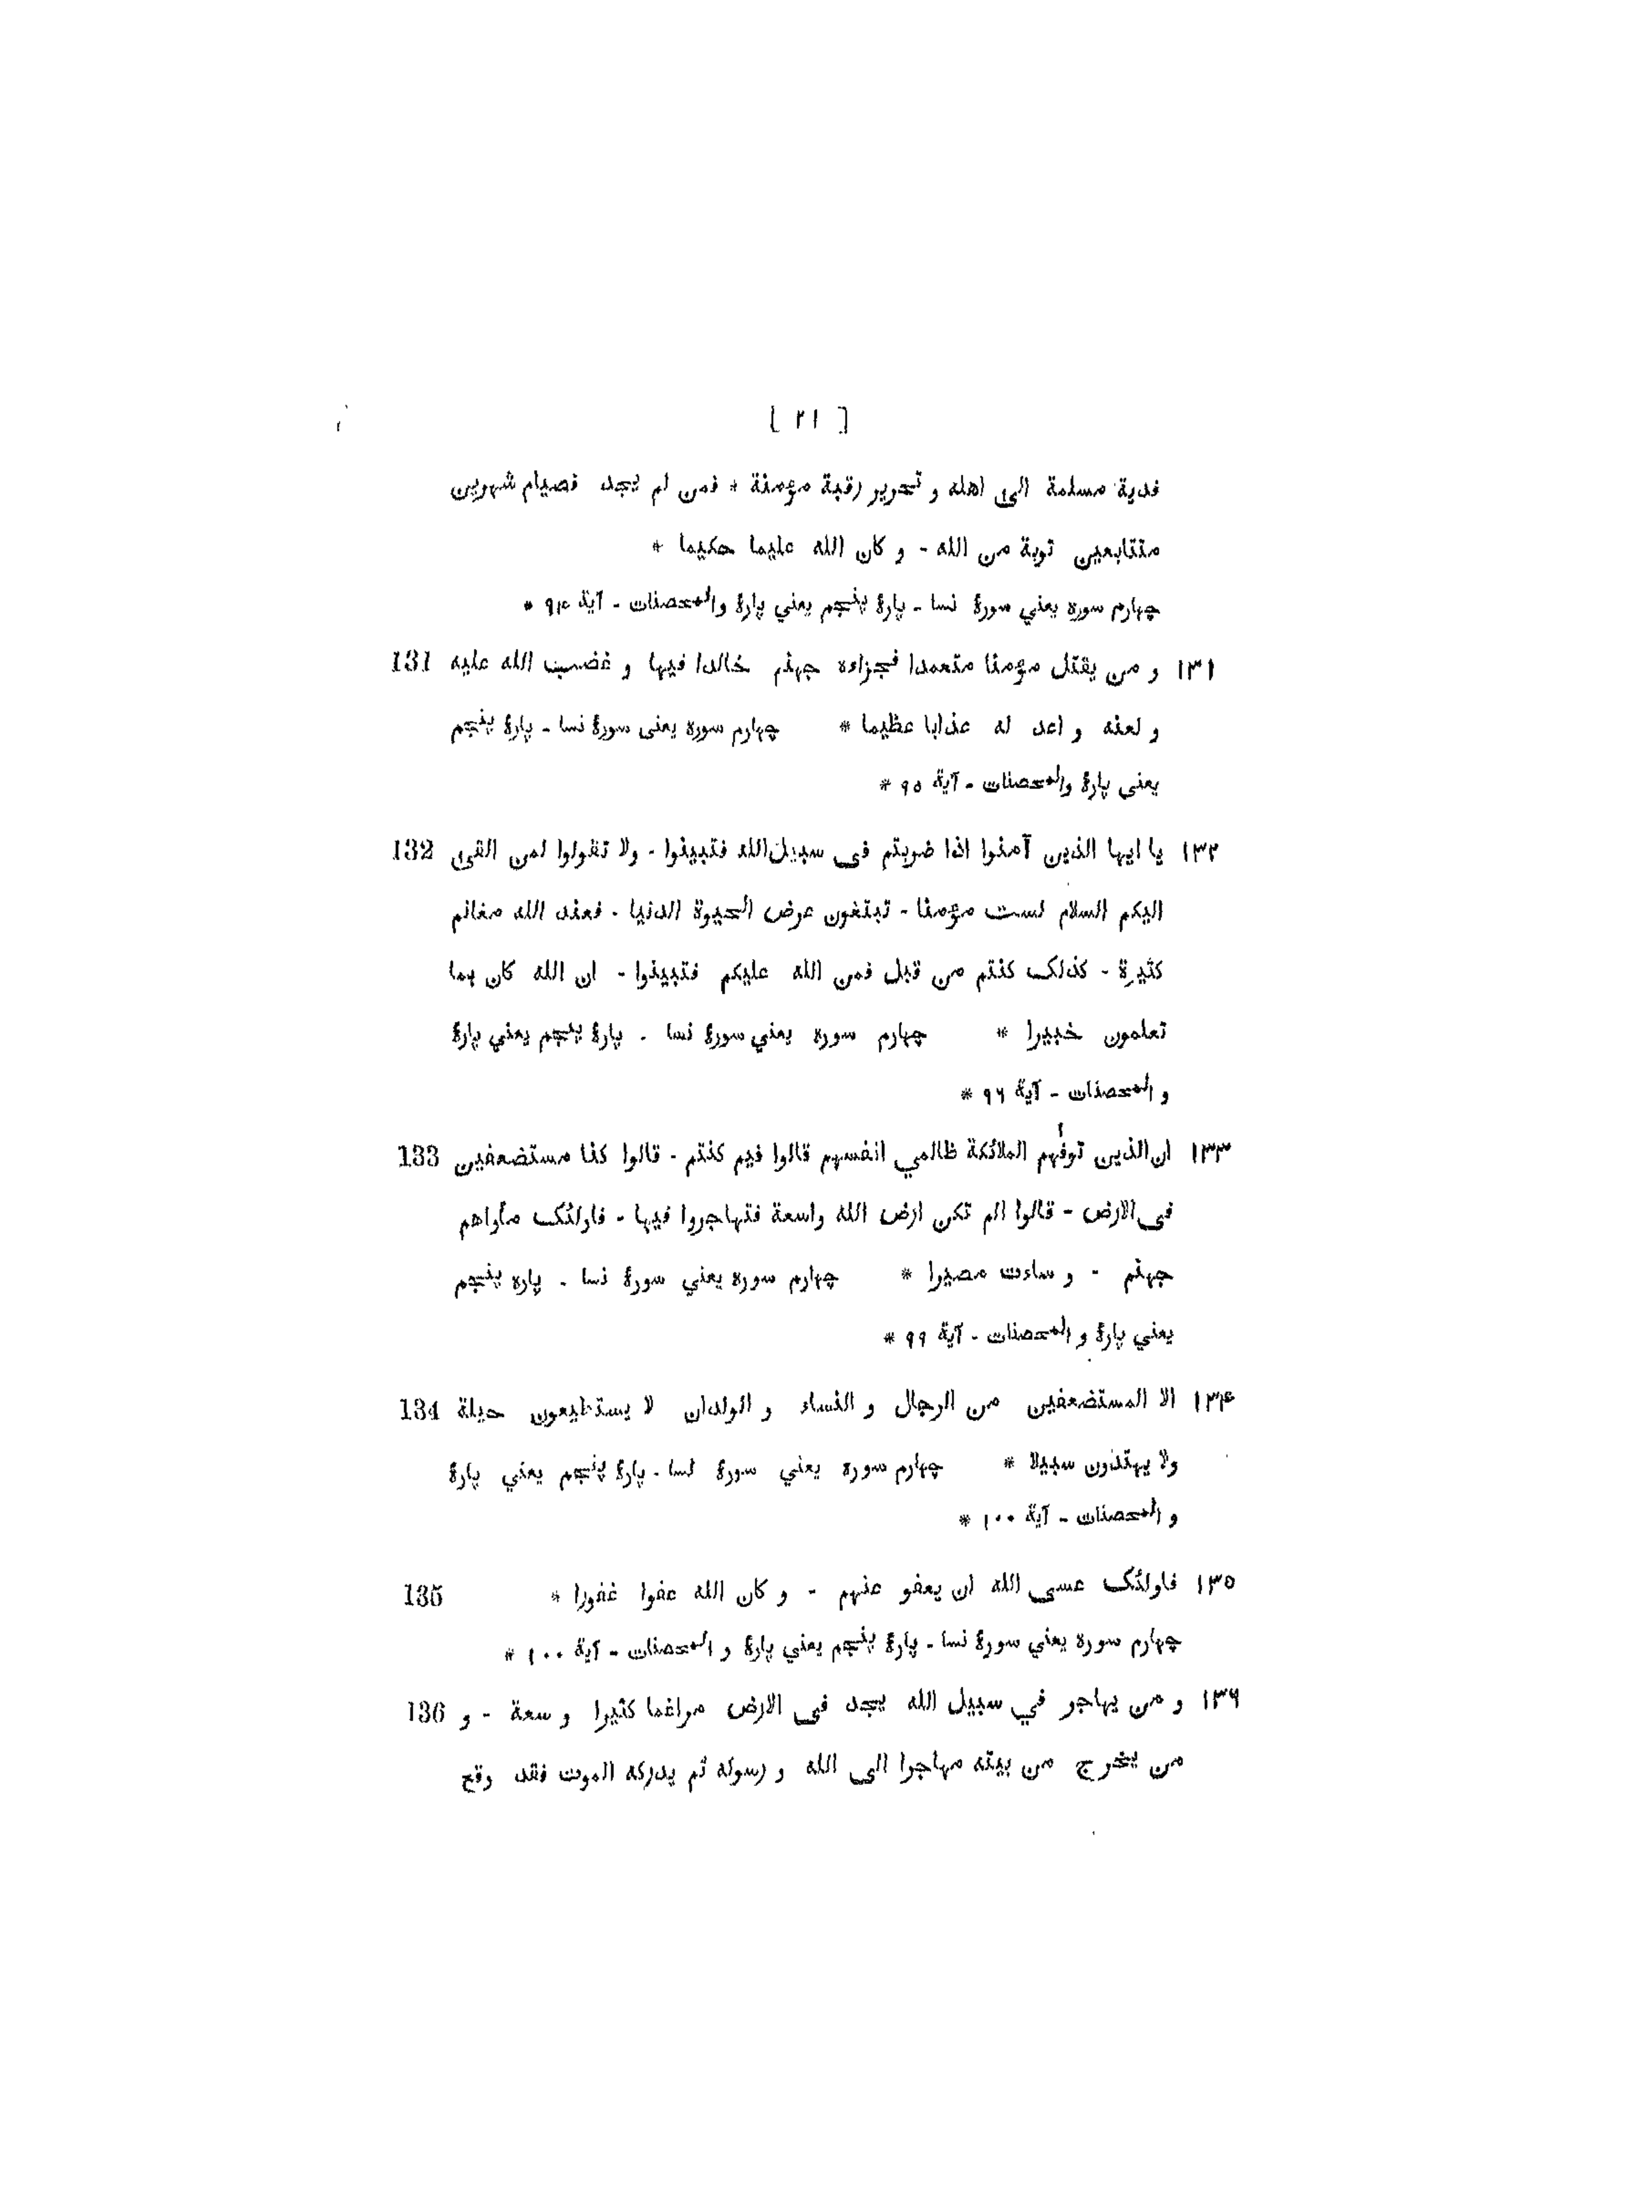 [ ٢١ ]
فدية مسلمة الى اهله و تحرير رقبة مؤمنة * فمن لم يجد فصيام شهرين
متتابعين توبة من الله - و كان الله عليما حكيما *
چهارم سوره يعني سورهٔ نسا - پارهٔ پنجم يعني پارهٔ والمحصنات - آية ٩۴ *
١٣١ و من يقتل مؤمنا متعمدا فجزاءه جهنم خالدا فيها و غضب الله عليه 131
و لعنه و اعد له عذابا عظيما * چهارم سوره يعنى سورهٔ نسا - پارهٔ پنجم
يعنى پارهٔ والمحصنات - آية ٩٥ *
١٣٢ يا ايها الذين آمنوا اذا ضربتم فى سبيل الله فتبينوا - ولا تقولوا لمن القى 132
اليكم السلام لست مؤمنا - تبتغون عرض الحيوة الدنيا - فعند الله مغانم
كثيرة - كذلك كنتم من قبل فمن الله عليكم فتبينوا - ان الله كان بما
تعلمون خبيرا * چهارم سوره يعني سورهٔ نسا - پارهٔ پنجم يعني پارهٔ
و المحصنات - آية ٩٦ *
١٣٣ ان الذين توفٰهم الملائكة ظالمي انفسهم قالوا فيم كنتم - قالوا كنا مستضعفين 133
فى الارض - قالوا الم تكن ارض الله واسعة فتهاجروا فيها - فاولئك مأواهم
جهنم - و ساءت مصيرا * چهارم سوره يعني سورهٔ نسا - پاره پنجم
يعني پارهٔ و المحصنات - آية ٩٩ *
١٣۴ الا المستضعفين من الرجال و النساء و الولدان لا يستطيعون حيلة 134
ولا يهتدون سبيلا * چهارم سوره يعني سورهٔ نسا - پارهٔ پنجم يعني پارهٔ
و المحصنات - آية ١٠٠ *
١٣٥ فاولئك عسى الله ان يعفو عنهم - و كان الله عفوا غفورا * 135
چهارم سوره يعني سورهٔ نسا - پارهٔ پنجم يعني پارهٔ و المحصنات - آية ١٠٠ *
١٣٦ و من يهاجر في سبيل الله يجد فى الارض مراغما كثيرا و سعة - و 136
من يخرج من بيته مهاجرا الى الله و رسوله ثم يدركه الموت فقد وقع